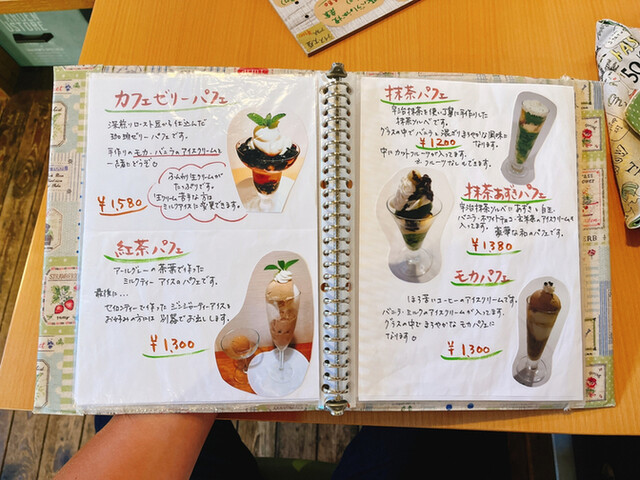 カフェゼリーパフェ
深煎りロースト豆から仕込んだ
珈琲ゼリーパフェです。
手作りのモカ・バニラのアイスクリームと
一緒にどうぞ
ふんわり生クリームが
たっぷりです。
生クリーム苦手な方は
ミルクアイスに変更できます。
¥1,580
紅茶パフェ
アールグレーの茶葉で作った
ミルクティーアイスのパフェです。
最後に...
セイロンティーで作ったジンジャーティーアイスを
お好みの方には別器でお出しします。
¥1,300
抹茶パフェ
宇治抹茶を使い丁寧に手作りした
抹茶ジェラートです。
グラスの中でバニラと混ざりまろやかな風味に
なります。
¥1200
中にカットフルーツが入ってます。
フルーツなしもできます。
抹茶あずきパフェ
宇治抹茶ジェラートにあずきと白玉
バニラ・ホワイトチョコ・
のアイスクリームも
入ってます。
豪華な和のパフェです。
¥1380
モカパフェ
ほろ苦いコーヒーのアイスクリームです。
バニラ・ミルクのアイスクリームが入ってます。
グラスの中でまろやかなモカパフェに
なります
¥1,300